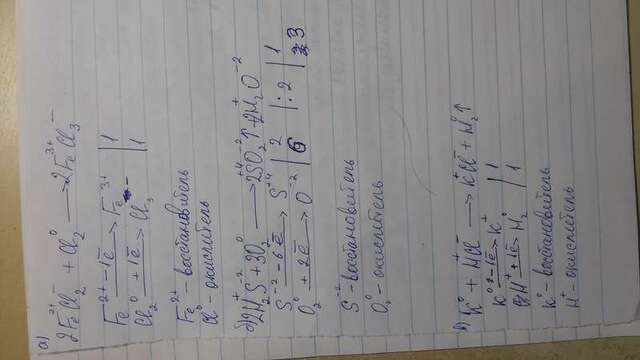 а)
2Fe²⁺Cl₂⁻ + Cl₂⁰ ⟶ 2Fe³⁺Cl₃⁻
Fe²⁺ −1ē⟶ Fe³⁺ | 1
Cl₂⁰ +1ē⟶ Cl₃⁻ | 1
Fe²⁺ – восстановитель
Cl⁰ – окислитель
б) 2H₂⁺S⁻² + 3O₂⁰ ⟶ 2S⁺⁴O₂⁻²↑ + 2H₂⁺O⁻²
S⁻² −6ē⟶ S⁺⁴ | 2 | :2 | 1
O₂⁰ +2ē⟶ O⁻² | 6 | 3
S⁻² – восстановитель
O₂⁰ – окислитель
в) K⁰ + H⁺Cl⁻ ⟶ K⁺Cl⁻ + H₂⁰↑
K⁰ −1ē⟶ K⁺ | 1
H⁺ +1ē⟶ H₂ | 1
K⁰ – восстановитель
H⁺ – окислитель